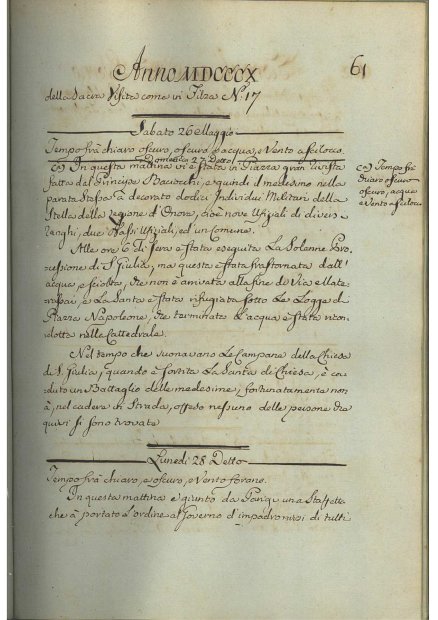 Anno MDCCCX
61
della Sacra Visita come in Filza N. 17
Sabato 26 Maggio
Tempo frà chiaro oscuro, oscuro, e acqua, e Vento a Scilocco.
Domenica 27 Detto
(a) In questa mattina vi è stata in Piazza gran rivista
(a) Tempo frà
chiaro oscuro
oscuro, acqua
e Vento a Sciloc.
fatta dal Principe Baciocchi, e quindi il medesimo nella
parata Stessa à decorato dodici Individui Militari della
Stella della Legione d'Onore, cioè nove Ufiziali di diversi
ranghi, due Bassi Ufiziali, ed un comune.
Alle ore 6 di sera è stata eseguita La Solenne Pro
cessione di S. Giulia, ma questa è stata frastornata dall'
acqua, e sciolta, che non è arrivata alla fine di Via
e La Santa è stata rifugiata sotto Le Logge di
Piazza Napoleone, che terminata L'acqua è stata ricon
dotta nella Cattedrale.
Nel tempo che suonavano Le Campane della Chiesa
di S. Giulia, quando è sortita La Santa di Chiesa, è ca
duto un Battaglio delle medesime, fortunatamente non
à, nel cadere in Strada, offeso nessuno delle persone che
quivi si sono trovate
Lunedì 28 Detto
Tempo frà chiaro, e oscuro, e Vento forano.
In questa mattina è giunto da Parigi una Staffetta
che à portato L'ordine al Governo d'impadronirsi di tutti